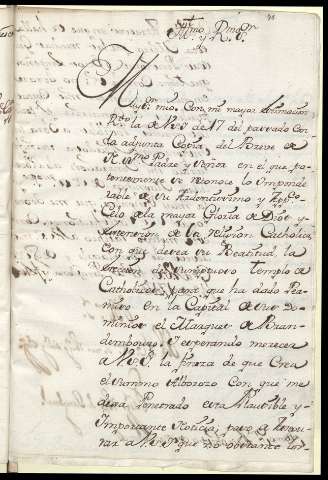 Muy S.r mio: Con mi mayor estimacion
la de V.S. de 17 del passado con
la adjunta Copia del Breve de
Padre y Señor en el que po-
tentemente se reconoce lo imponde-
rable de su Ardentissimo y
Celo a la mayor Gloria de Dios y
extension de la relixion Catholica
con que desea su Beatitud la
ereccion del sumptuoso Templo de
Catholicos, para que ha dado Per-
misso en la Capital de sus Do-
minios el Marques de Bran-
dembourg. Y esperando merecer
a V.S. la fineza de que Crea
el summo Alborozo con que me
dexa Penetrado esta Plausible y
Importante Noticia; passo a
rar a V.S. que no obstante los